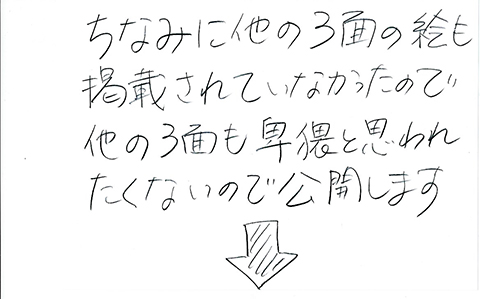 ちなみに他の3面の絵も
掲載されていなかったので
他の3面も卑猥と思われ
たくないので公開します